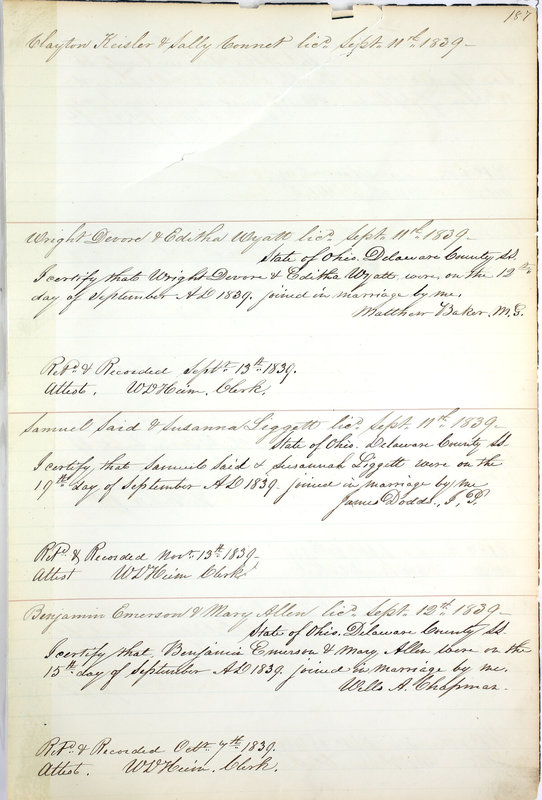 187
Clayton Keisler & Sally Connet licd. Sept. 11th. 1839-
Wright Devore & Editha Wyatt licd. Sept. 11th. 1839-
State of Ohio. Delaware County SS.
I certify that Wright Devore & Editha Wyatt, were on the 12th
day of September AD 1839. joined in marriage by me,
Matthew Baker, M.G.
Retd. & Recorded Sept. 13th. 1839.
Attest. W D Heim. Clerk.
Samuel Said & Susanna Liggett licd. Sept. 11th. 1839-
State of Ohio. Delaware County SS.
I certify, that Samuel Said & Susannah Liggett were on the
19th day of September AD 1839. joined in marriage by me
James Dodds., J. P.
Retd. & Recorded Novr. 13th. 1839-
Attest W D Heim Clerk.
Benjamin Emerson & Mary Allen licd. Sept. 12th. 1839-
State of Ohio. Delaware County SS.
I certify that, Benjamin Emerson & Mary Allen were on the
15th. day of September AD 1839. joined in marriage by me,
Wells A. Chapman.
Retd. & Recorded Octr. 7th. 1839.
Attest. W D Heim. Clerk.